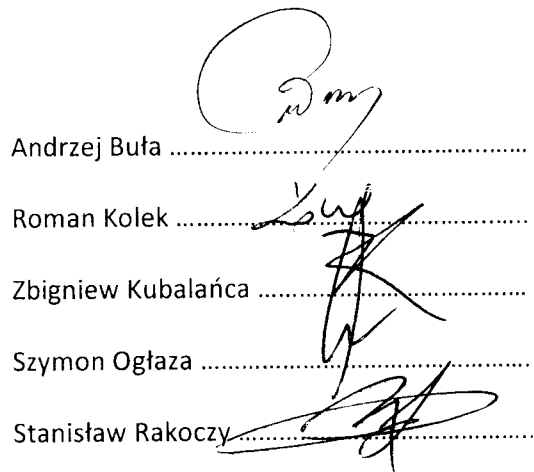 Andrzej Buła ........................................................
Roman Kolek ........................................................
Zbigniew Kubalańca ...........................................
Szymon Ogłaza ....................................................
Stanisław Rakoczy ..............................................